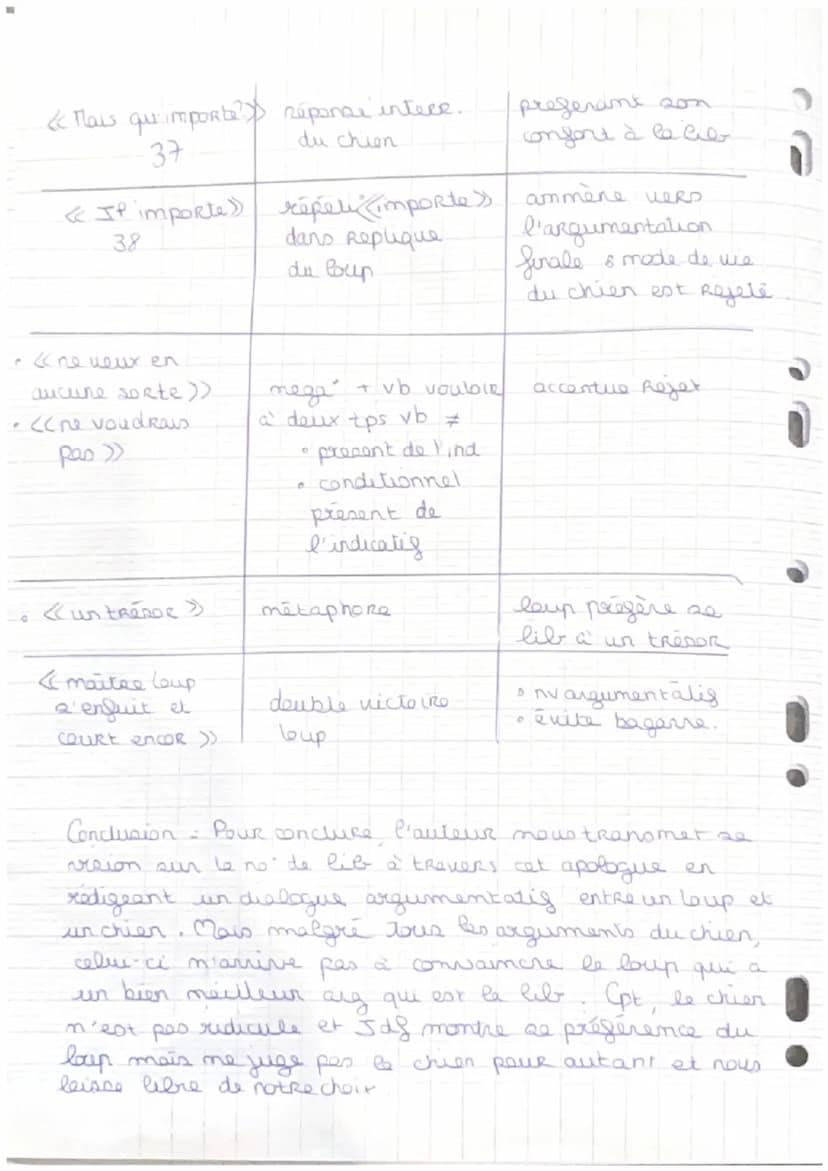 « Mais qu'importe? »
37
réponse interr.
du chien
préférant son
confort à la lib
« Il importe »
38
répéti° « importe »
dans Replique
du loup
ammène vers
l'argumentation
finale : mode de vie
du chien est Rejeté.
• « ne veux en
aucune sorte »
• « ne voudrais
pas »
nega° + vb vouloir
à deux tps vb ≠
• present de l'ind
• conditionnel
présent de
l'indicatif
accentue Rejet
• « un trésor »
métaphore
loup préfère sa
lib à un trésor
« maître loup
s'enfuit et
court encor »
double victoire
loup
• nv argumentatif
• évite bagarre.
Conclusion : Pour conclure, l'auteur nous transmet sa
vision sur la no° de lib à travers cet apologue en
rédigeant un dialogue argumentatif entre un loup et
un chien. Mais malgré tous les arguments du chien,
celui-ci n'arrive pas à convaincre le loup qui a
un bien meilleur arg qui est la lib. Cpt, le chien
n'est pas ridicule et Jdf montre sa préférence du
loup mais ne juge pas le chien pour autant et nous
laisse libre de notre choix